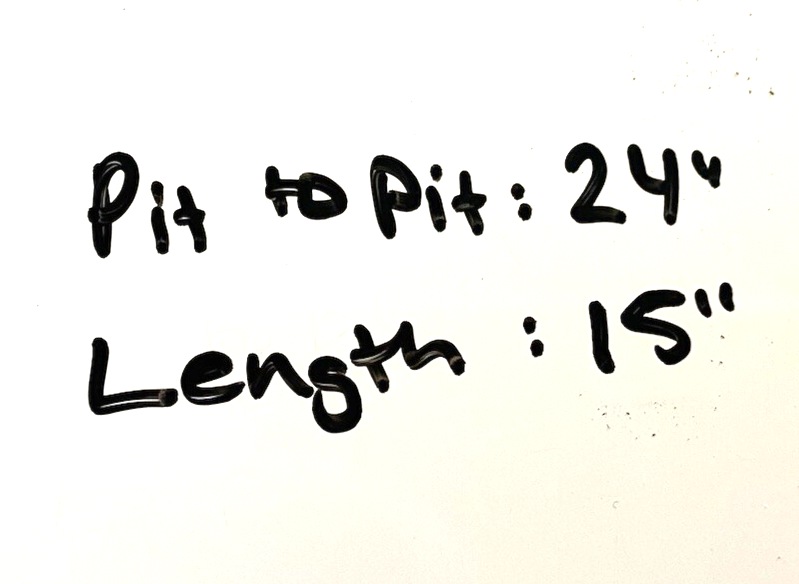 Pit to Pit: 24"
Length: 15"